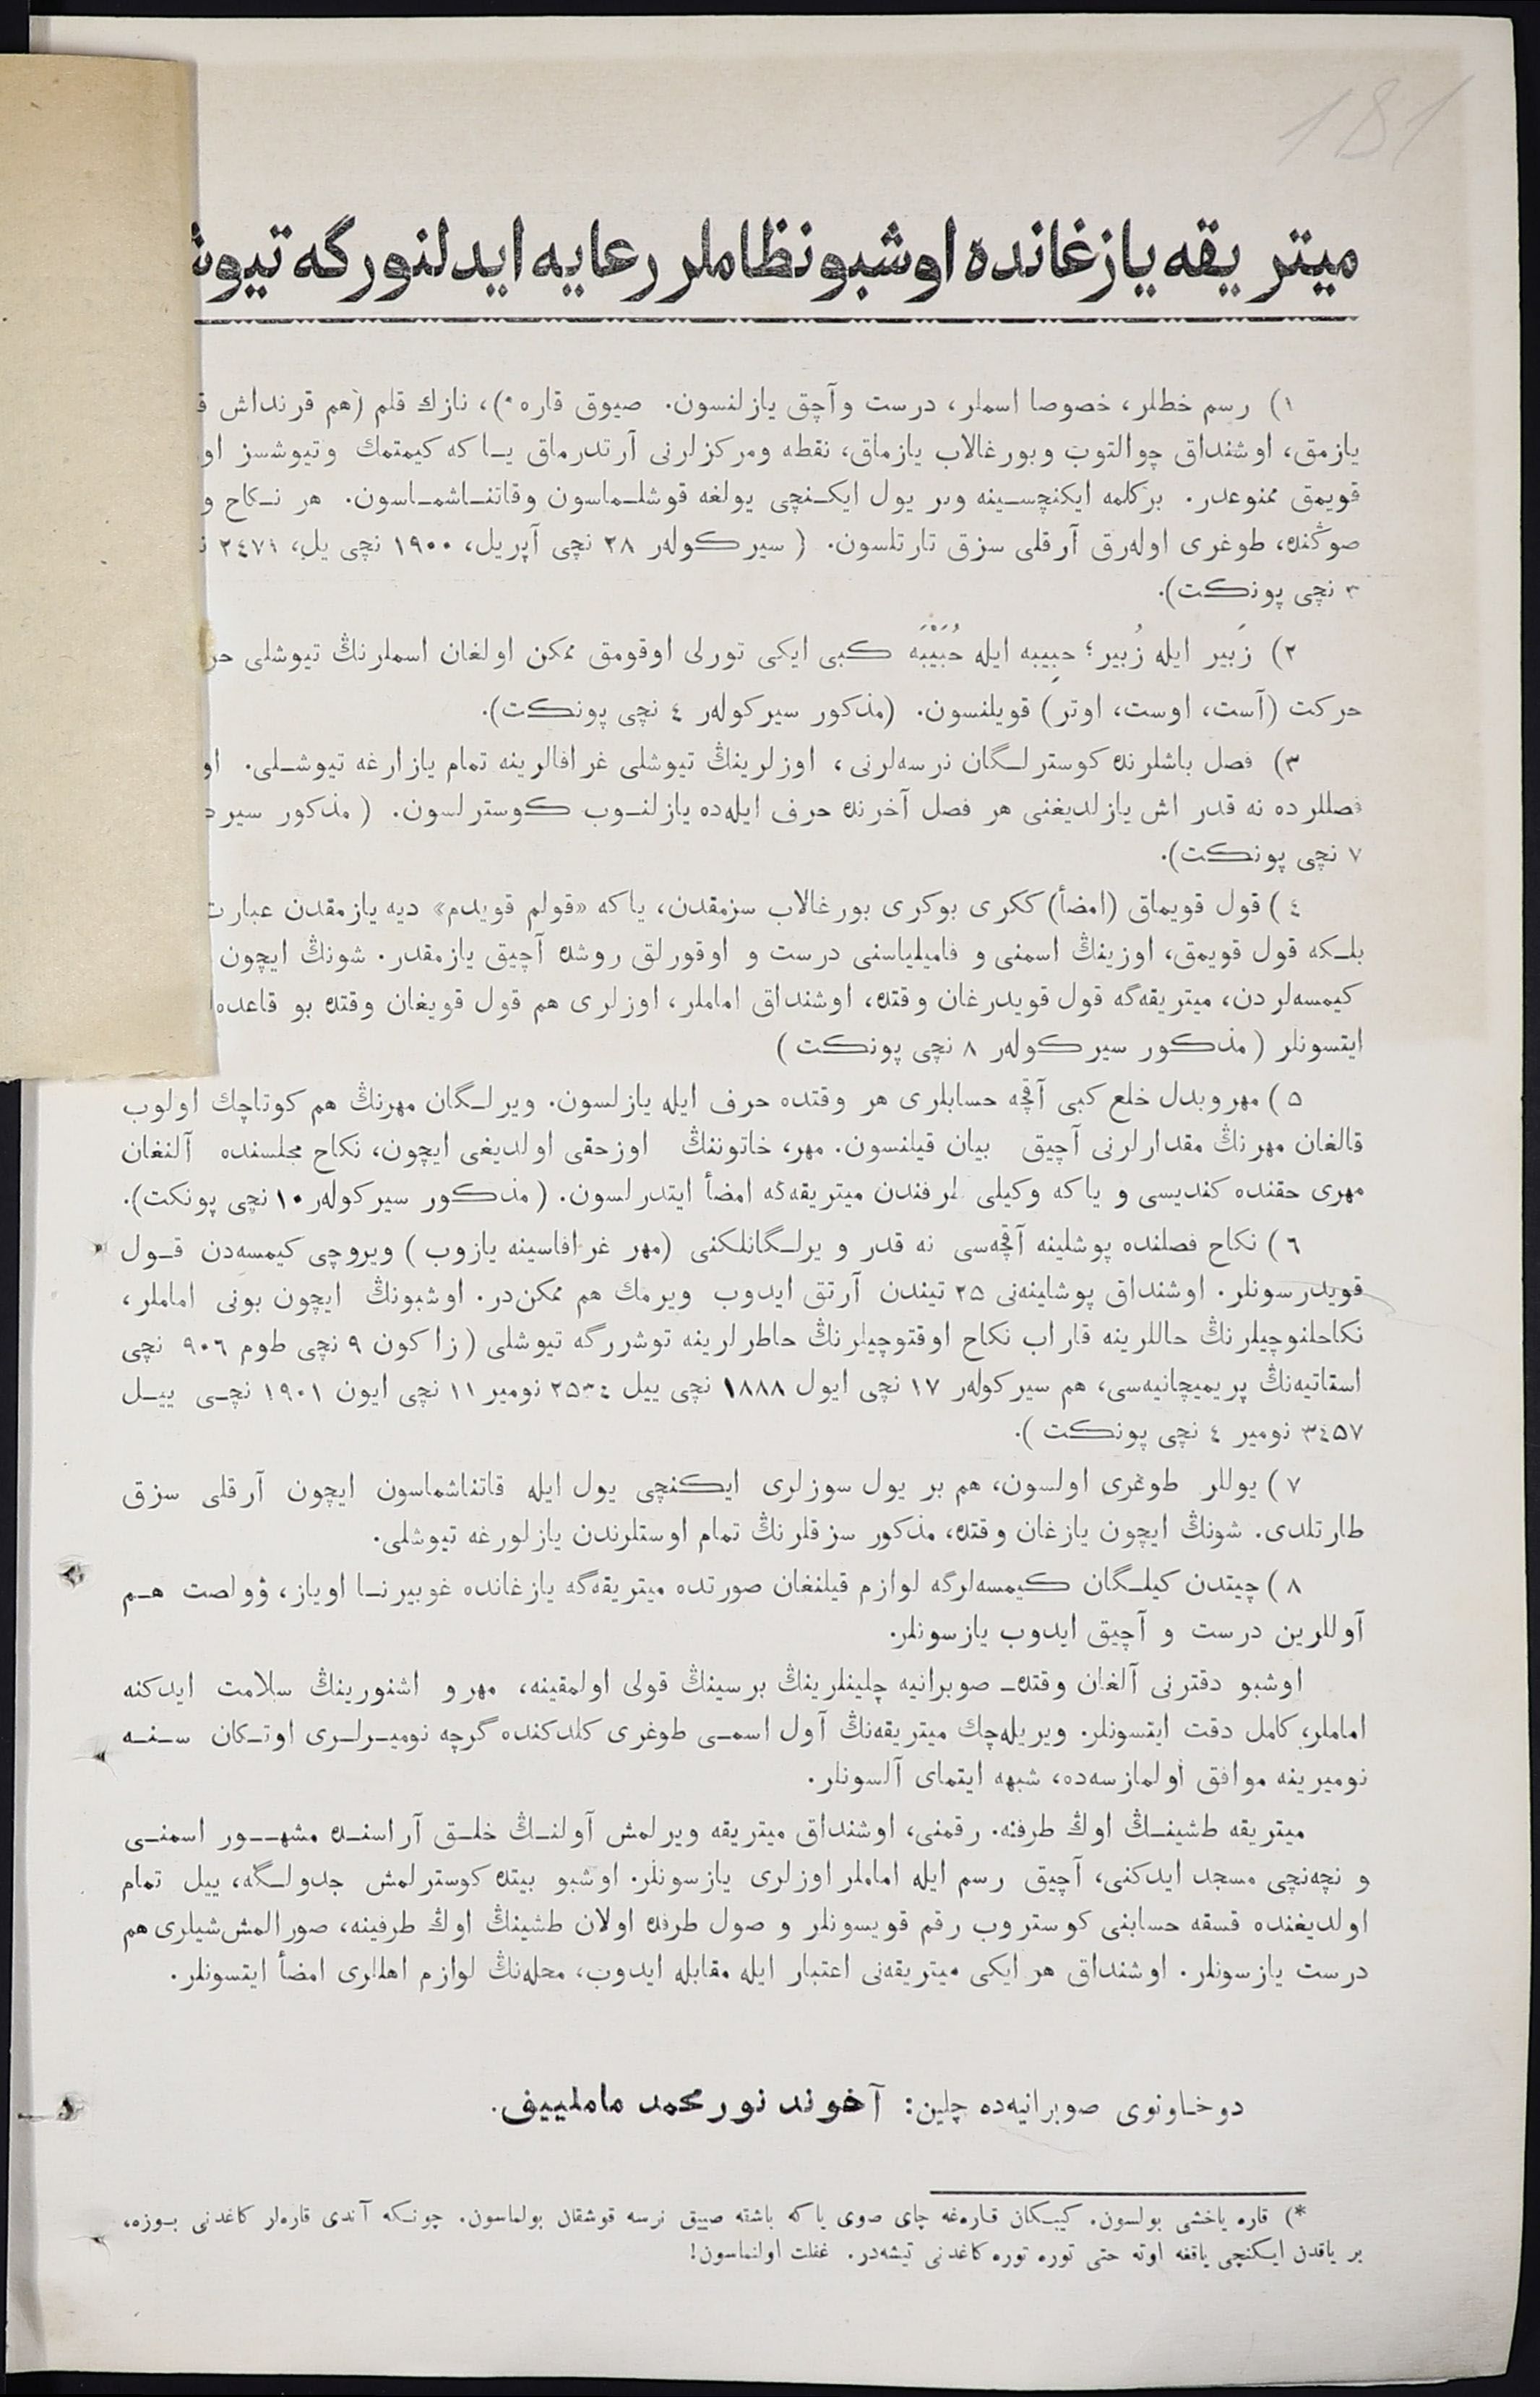 181
ميتريقه يازغانده اوشبو نظاملر رعايه ايدلنورگه تيوش
١) رسم خطلر، خصوصا اسملر، درست وآچق يازلنسون. صيوق قاره *)، نازك قلم (هم قرنداش
يازمق، اوشنداق چوالتوب وبورغالاب يازماق، نقطه ومركزلرنى آرتدرماق ياكه كيمتمك وتيوشسز
قويمق ممنوعدر. بركلمه ايكنچسينه وبر يول ايكنچى يولغه قوشلماسون وقاتناشماسون. هر نكاح
صوڭنده، طوغرى اولەرق آرقلى سزق تارتلسون. (سيركولەر ٢٨ نچى آپريل، ١٩٠٠ نچى يل،
٣ نچى پونكت).
٢) زَبير ايله زُبير؛ حبِيبه ايله حُبَيْبَه كبى ايكى تورلى اوقومق ممكن اولغان اسملرنڭ تيوشلى
حركت (آست، اوست، اوتر) قويلنسون. (مذكور سيركولەر ٤ نچى پونكت).
٣) فصل باشلرنده كوسترلگان نرسەلرنى، اوزلرينڭ تيوشلى غرافالرينه تمام يازارغه تيوشلى.
فصللرده نه قدر اش يازلديغنى هر فصل آخرنده حرف ايلەده يازلنوب كوسترلسون. (مذكور
٧ نچى پونكت).
٤) قول قويماق (امضأ) ككرى بوكرى بورغالاب سزمقدن، ياكه «قولم قويدم» ديه يازمقدن
بلكه قول قويمق، اوزينڭ اسمنى و فاميلياسنى درست و اوقورلق روشده آچيق يازمقدر. شونڭ ايچون
كيمسەلردن، ميتريقەگه قول قويدرغان وقتده، اوشنداق اماملر، اوزلرى هم قول قويغان وقتده بو
ايتسونلر (مذكور سيركولەر ٨ نچى پونكت)
٥) مهر وبدل خلع كبى آقچه حسابلرى هر وقتده حرف ايله يازلسون. ويرلگان مهرنڭ هم كوتاچك اولوب
قالغان مهرنڭ مقدارلرنى آچيق بيان قيلنسون. مهر، خاتوننڭ اوزحقى اولديغى ايچون، نكاح مجلسنده آلنغان
مهرى حقنده كنديسى و ياكه وكيلى طرفندن ميتريقەگه امضأ ايتدرلسون. (مذكور سيركولەر ١٠ نچى پونكت).
٦) نكاح فصلنده پوشلينه آقچەسى نه قدر ويرلگانلكنى (مهر غرافاسينه يازوب) ويروچى كيمسەدن قول
قويدرسونلر. اوشنداق پوشلينەنى ٢٥ تيندن آرتق ايدوب ويرمك هم ممكن‌در. اوشبونڭ ايچون بونى اماملر،
نكاحلنوچيلرنڭ حاللرينه قاراب نكاح اوقتوچيلرنڭ خاطرلرينه توشررگه تيوشلى (زاكون ٩ نچى طوم ٩٠٦ نچى
استاتيەنڭ پريميچانيەسى، هم سيركولەر ١٧ نچى ايول ١٨٨٨ نچى ييل ٢٥٣٤ نومير ١١ نچى ايون ١٩٠١ نچى ييل
٣٤٥٧ نومير ٤ نچى پونكت).
٧) يوللر طوغرى اولسون، هم بر يول سوزلرى ايكنچى يول ايله قاتناشماسون ايچون آرقلى سزق
طارتلدى. شونڭ ايچون يازغان وقتده، مذكور سزقلرنڭ تمام اوستلرندن يازلورغه تيوشلى.
٨) چيتدن كيلگان كيمسەلرگه لوازم قيلنغان صورتده ميتريقەگه يازغانده غوبيرنا اوياز، ۋولصت هم
آوللرين درست و آچيق ايدوب يازسونلر.
اوشبو دفترنى آلغان وقتده صوبرانيه چلينلرينڭ برسينڭ قولى اولمقينه، مهر و اشنورينڭ سلامت ايدكنه
اماملر، كامل دقت ايتسونلر. ويريلەچك ميتريقەنڭ آول اسمى طوغرى كلدكنده گرچه نوميرلرى اوتكان سنه
نوميرينه موافق اولمازسەده، شبهه ايتماى آلسونلر.
ميتريقه طشينڭ اوڭ طرفنه. رقمنى، اوشنداق ميتريقه ويرلمش آولنڭ خلق آراسنده مشهور اسمنى
و نچەنچى مسجد ايدكنى، آچيق رسم ايله اماملر اوزلرى يازسونلر. اوشبو بيتده كوسترلمش جدولگه، ييل تمام
اولديغنده قسقه حسابنى كوستروب رقم قويسونلر و صول طرفده اولان طشينڭ اوڭ طرفينه، صورالمش شيلرى هم
درست يازسونلر. اوشنداق هر ايكى ميتريقەنى اعتبار ايله مقابله ايدوب، محلەنڭ لوازم اهللرى امضأ ايتسونلر.
دوخاونوى صوبرانيەده چلين: آخوند نور محمد ماملييف.
*) قاره ياخشى بولسون. كيبكان قارەغه چاى صوى ياكه باشقه صييق نرسه قوشقان بولماسون. چونكه آندى قارەلر كاغدنى بوزه،
بر ياقدن ايكنچى ياقغه اوته حتى توره توره كاغدنى تيشەدر. غفلت اولنماسون!